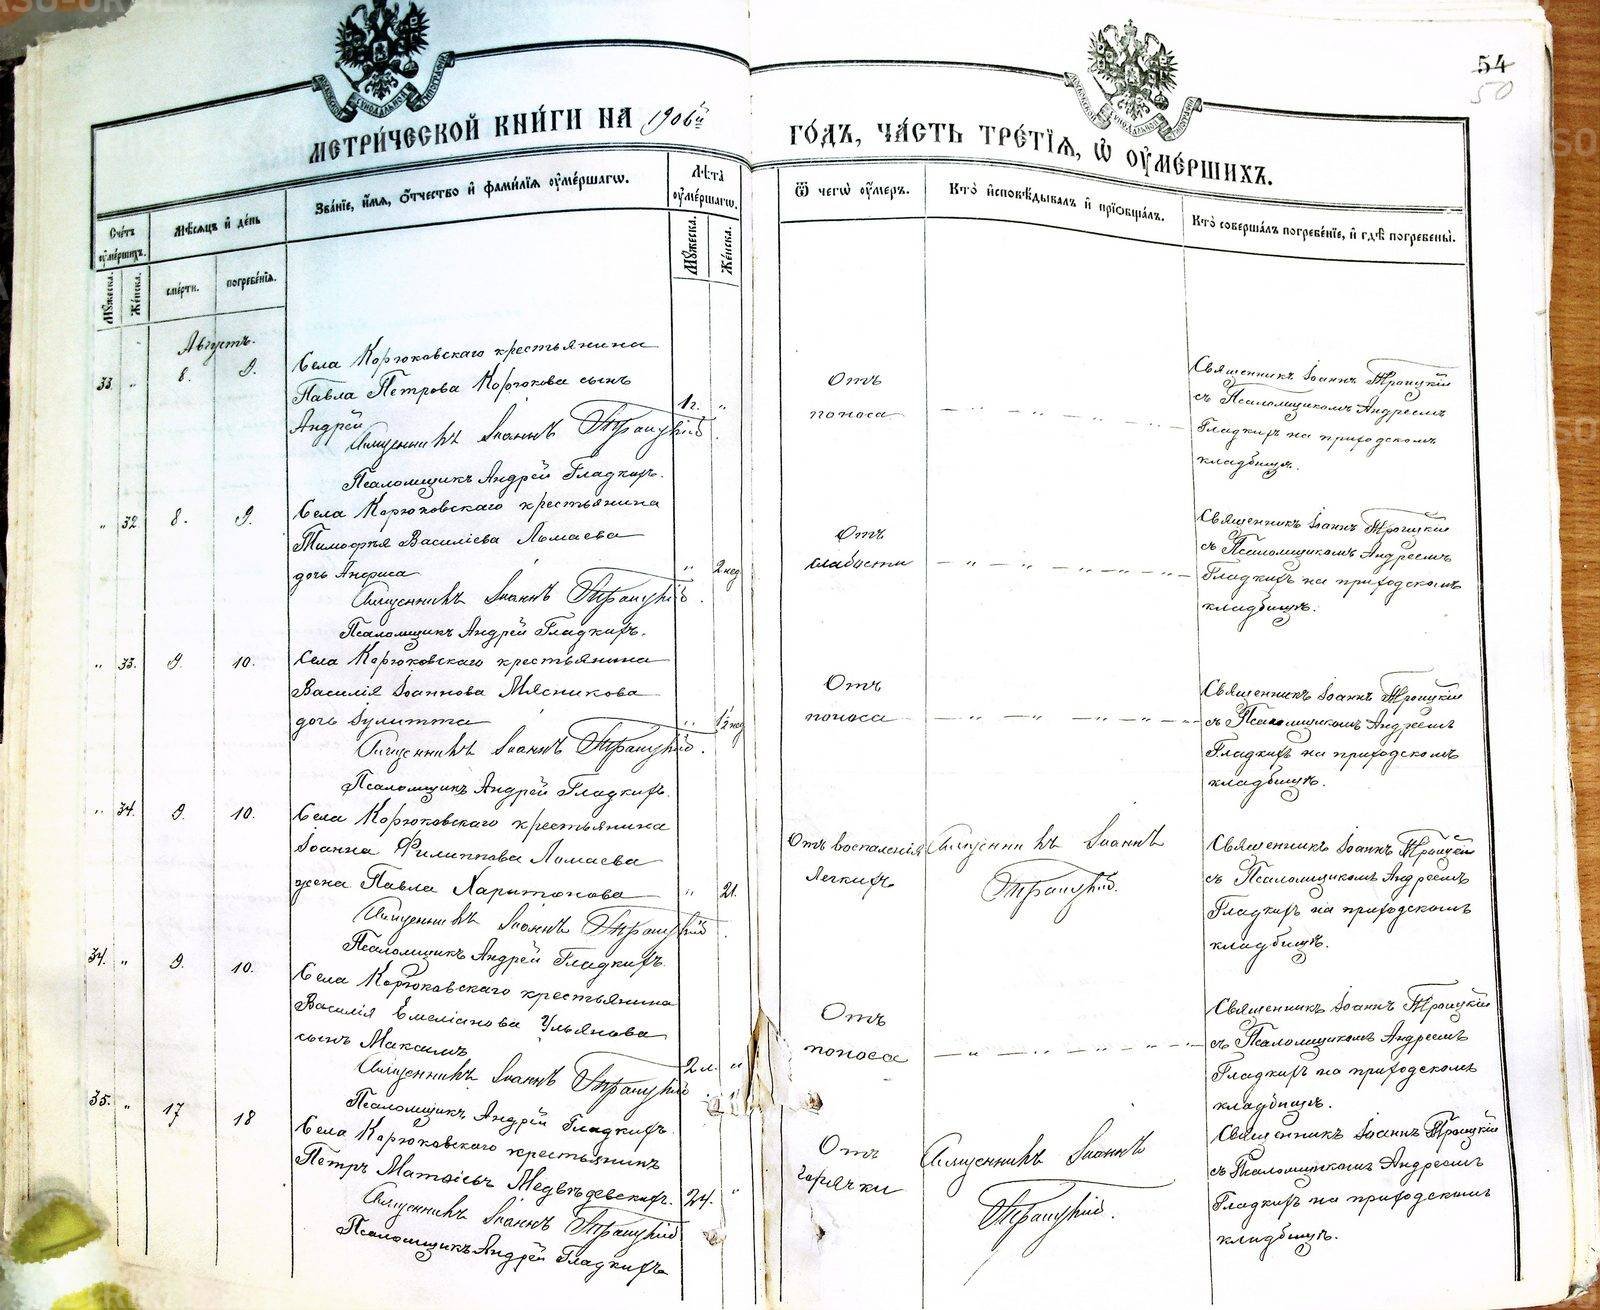 54
50
МЕТРИ́ЧЕСКОЙ КНИ́ГИ НА 1906й ГО́ДЪ, ЧА́СТЬ ТРЕ́ТІЯ, Ѡ҆ ОУ҆МЕ́РШИХЪ.
Сче́тъ оу҆ме́ршихъ.
Мꙋ́жеска.
Же́нска.
Мѣ́сяцъ и҆ де́нь
сме́рти.
погребе́нїѧ.
Зва́нїе, и҆́мѧ, ѻ҆́тчество и҆ фами́лїѧ оу҆ме́ршагѡ.
Лѣ́та оу҆ме́ршагѡ.
Мꙋ́жеска.
Же́нска.
Ѿ чегѡ̀ оу҆́меръ.
Кто̀ и҆сповѣ́дывалъ и҆ прїѡбща́лъ.
Кто̀ соверша́лъ погребе́нїе, и҆ гдѣ̀ погребены̀.
Августъ.
33 " 8. 9.
Села Корюковскаго крестьянина
Павла Петрова Корюкова сынъ
Андрей
1 г. "
Священникъ Іоаннъ Троицкій
Псаломщикъ Андрей Гладкихъ.
Отъ
поноса
Священникъ Іоаннъ Троицкій
съ Псаломщикомъ Андреемъ
Гладкихъ на приходскомъ
кладбищѣ.
" 32 8. 9.
Села Корюковскаго крестьянина
Тимофѣя Василіева Ломаева
дочь Анфиса
" 2 нед
Священникъ Іоаннъ Троицкій.
Псаломщикъ Андрей Гладкихъ.
Отъ
слабости
Священникъ Іоаннъ Троицкій
съ Псаломщикомъ Андреемъ
Гладкихъ на приходскомъ
кладбищѣ.
" 33. 9. 10.
Села Корюковскаго крестьянина
Василія Іоаннова Мясникова
дочь Іулитта
" 1½ нед
Священникъ Іоаннъ Троицкій.
Псаломщикъ Андрей Гладкихъ.
Отъ
поноса
Священникъ Іоаннъ Троицкій
съ Псаломщикомъ Андреемъ
Гладкихъ на приходскомъ
кладбищѣ.
" 34. 9. 10.
Села Корюковскаго крестьянина
Іоанна Филиппова Ломаева
жена Павла Харитонова
" 21.
Священникъ Іоаннъ Троицкій
Псаломщикъ Андрей Гладкихъ.
Отъ воспаленія
легкихъ
Священникъ Іоаннъ
Троицкій.
Священникъ Іоаннъ Троицкій
съ Псаломщикомъ Андреемъ
Гладкихъ на приходскомъ
кладбищѣ.
34. " 9. 10.
Села Корюковскаго крестьянина
Василія Емеліанова Ульянова
сынъ Максимъ
2 л. "
Священникъ Іоаннъ Троицкій
Псаломщикъ Андрей Гладкихъ.
Отъ
поноса
Священникъ Іоаннъ Троицкій
съ Псаломщикомъ Андреемъ
Гладкихъ на приходскомъ
кладбищѣ.
35. " 17 18
Села Корюковскаго крестьянинъ
Петръ Матѳіевъ Медвѣдевскихъ.
24. "
Священникъ Іоаннъ Троицкій
Псаломщикъ Андрей Гладкихъ
Отъ
горячки
Священникъ Іоаннъ
Троицкій.
Священникъ Іоаннъ Троицкій
съ Псаломщикомъ Андреемъ
Гладкихъ на приходскомъ
кладбищѣ.